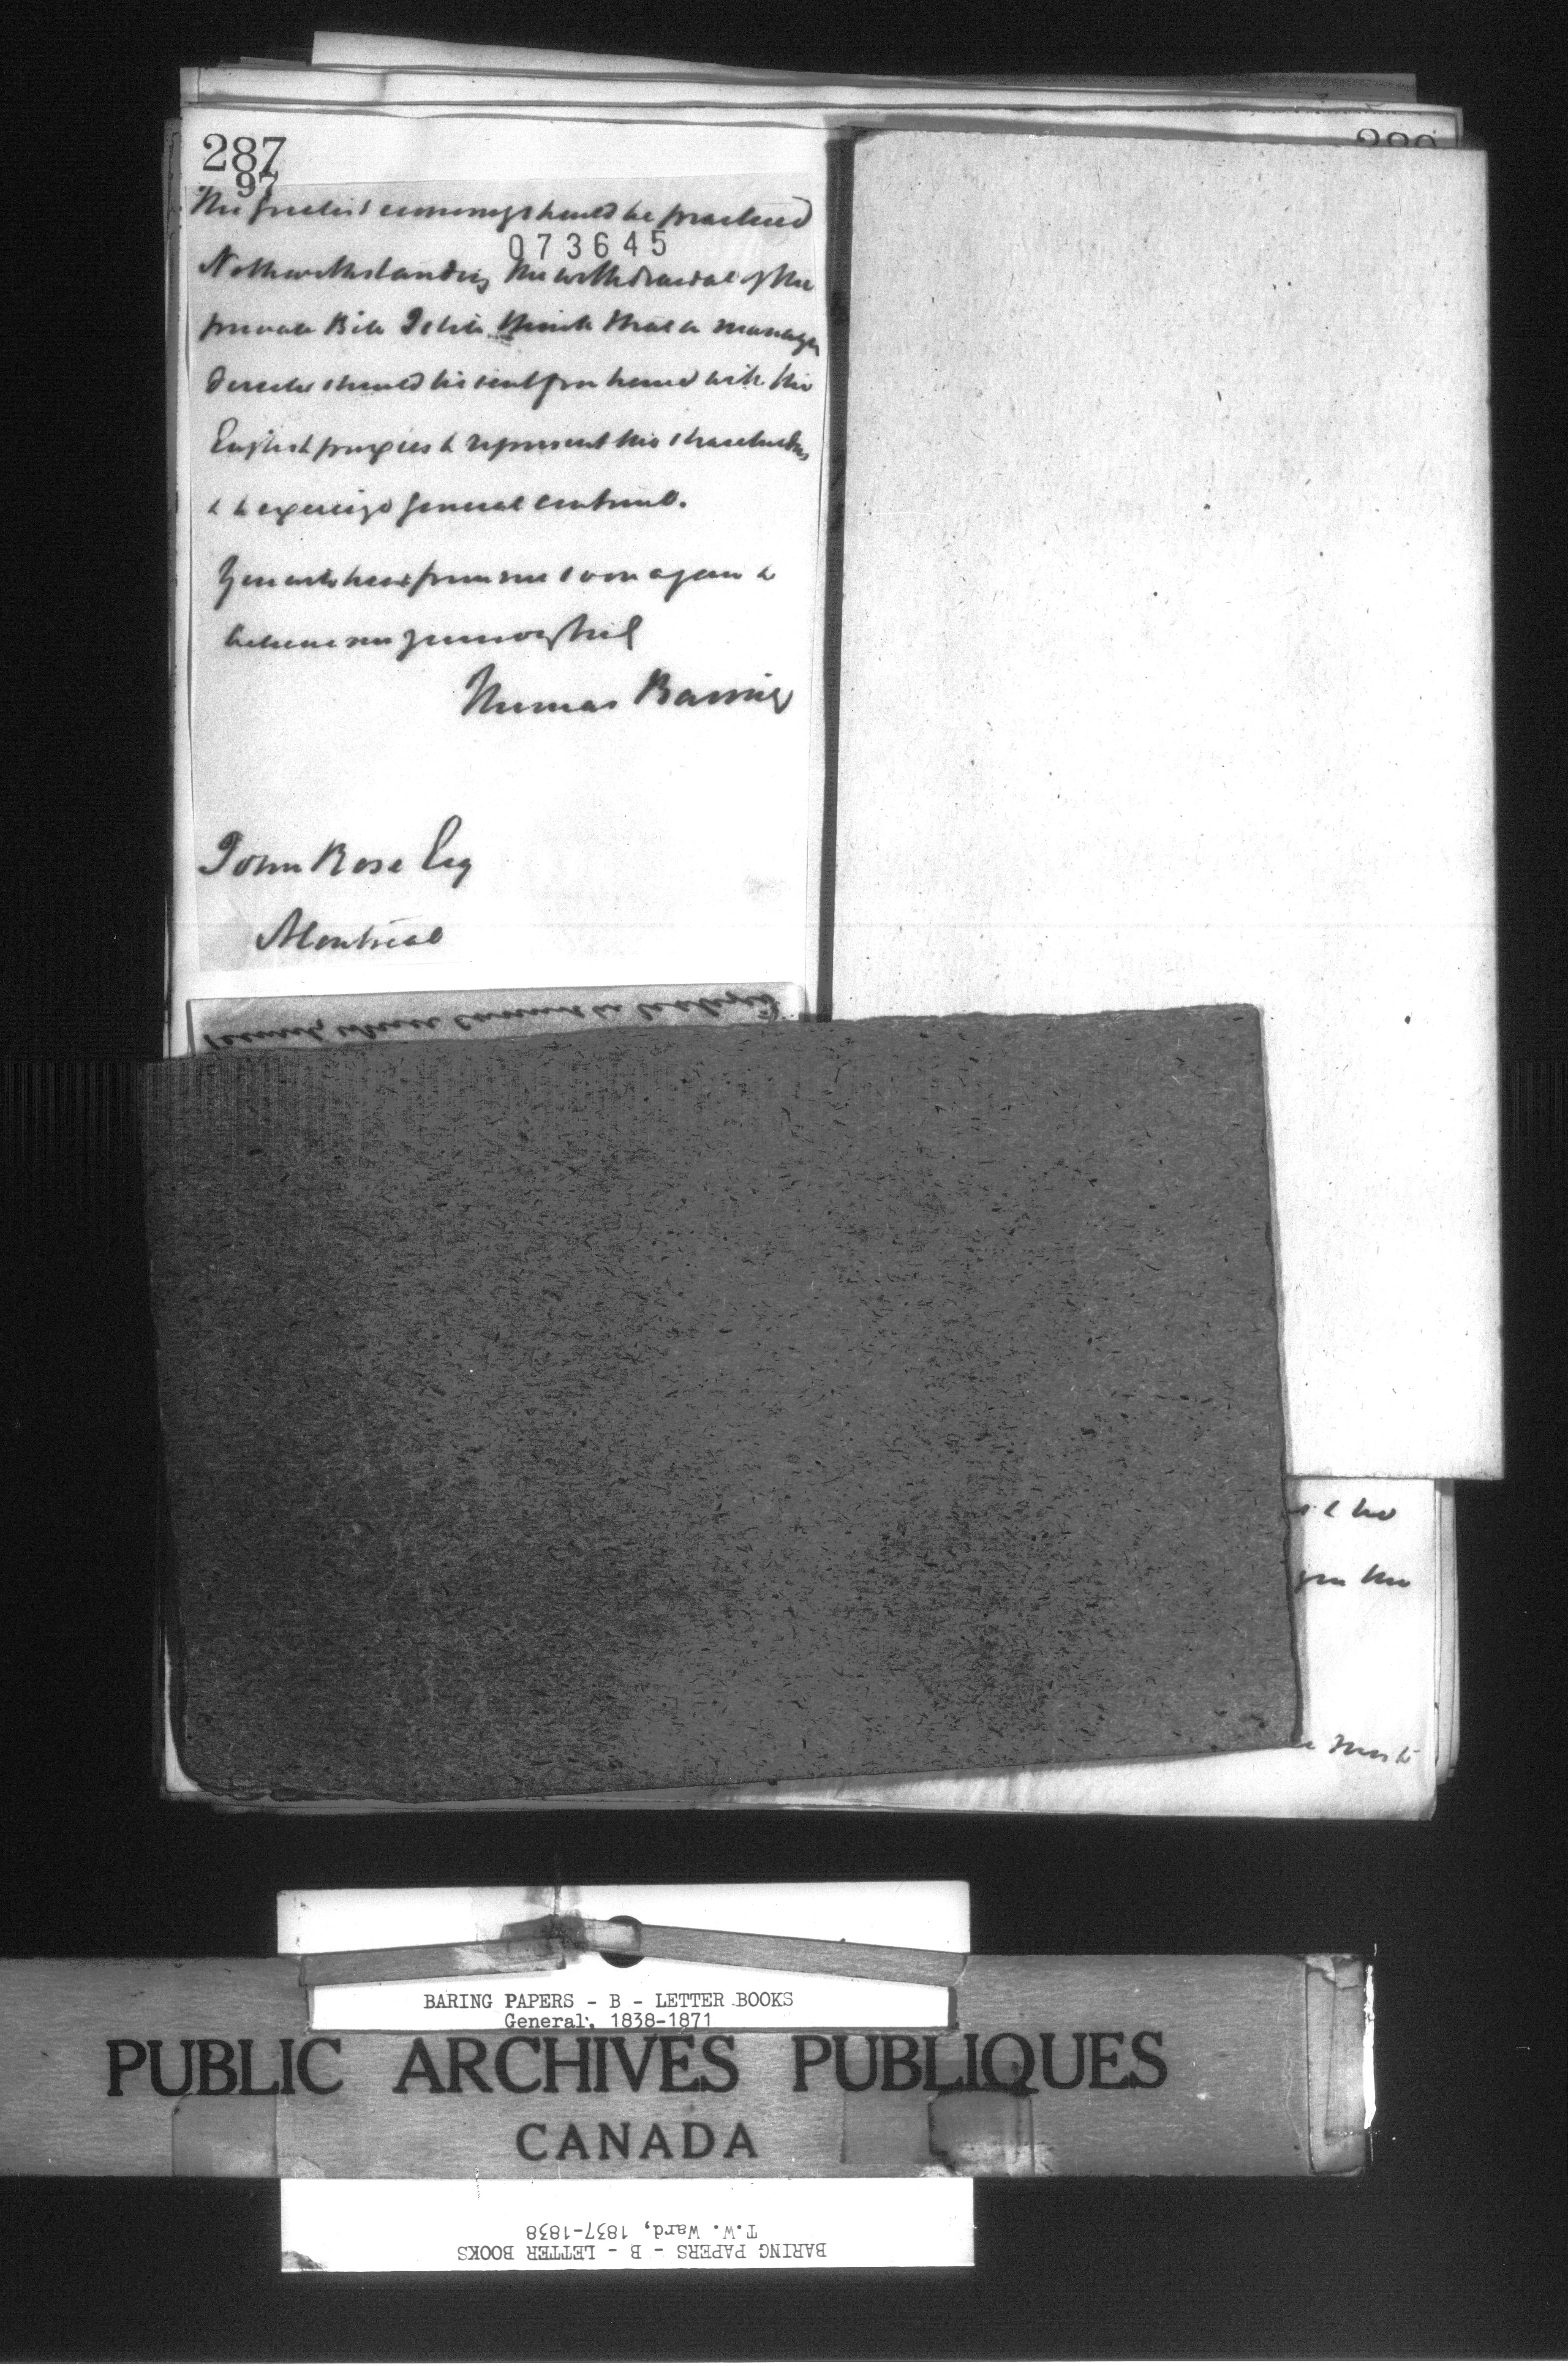 287
97
The greatest economy should be practiced
073645
Notwithstanding the withdrawal of the
private Bill I still think that a managing
director should be sent from hence with the
English proxies to represent the shareholders
& to exercise general control.
You will hear from me soon again &
believe me yours very truly
Thomas Baring
John Rose Esq
Montreal
cannot be
& the
you the
BARING PAPERS - B - LETTER BOOKS
General, 1838-1871
PUBLIC ARCHIVES PUBLIQUES
CANADA
T.W. Ward, 1837-1838
BARING PAPERS - B - LETTER BOOKS